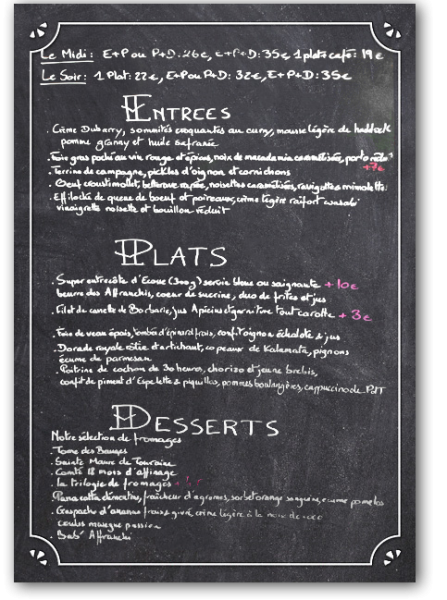 Le Midi : E+P ou P+D : 26€, E+P+D : 35€, 1 plat café : 19€
Le Soir : 1 Plat : 22€, E+P ou P+D : 32€, E+P+D : 35€
ENTREES
. Crème Dubarry, sommités croquantes au curry, mousse légère de haddock
pomme granny et huile safranée
. Foie gras poché au vin rouge et épices, noix de macadamia caramélisées, porto
+7€
. Terrine de campagne, pickles d'oignon et cornichons
. Oeuf croustimollet, betterave rapée, noisettes caramélisées, ravigotte mimolette
. Effilochée de queue de boeuf et poireaux, crème légère raifort wasabi
vinaigrette noisette et bouillon réduit
PLATS
. Super entrecôte d' (300g) servie bleue ou saignante +10€
beurre des Affranchis, coeur de sucrine, duo de frites et jus
. Filet de canette de Barbarie, jus Apicius et garniture tout carotte +3€
. Foie de veau épais, tombée d'épinard frais, confit oignon échalote & jus
. Dorade royale rôtie d'artichaut, copeaux de Kalamata, pignons
écume de parmesan
. Poitrine de cochon de 30 heures, chorizo et jeune brebis,
confit de piment d'Espelette & piquillos, pommes boulangères, cappuccino de PdT
DESSERTS
Notre sélection de fromages
. Tome des Bauges
. Sainte Maure de Touraine
. Comté 18 mois d'affinage
. la trilogie de fromages
. Panacotta clémentine, fraîcheur d'agrumes, sorbet orange sanguine, écume pomelos
. Gaspacho d'ananas frais givré, crème légère à la noix de coco
coulis mangue passion
. Bab' Affranchi